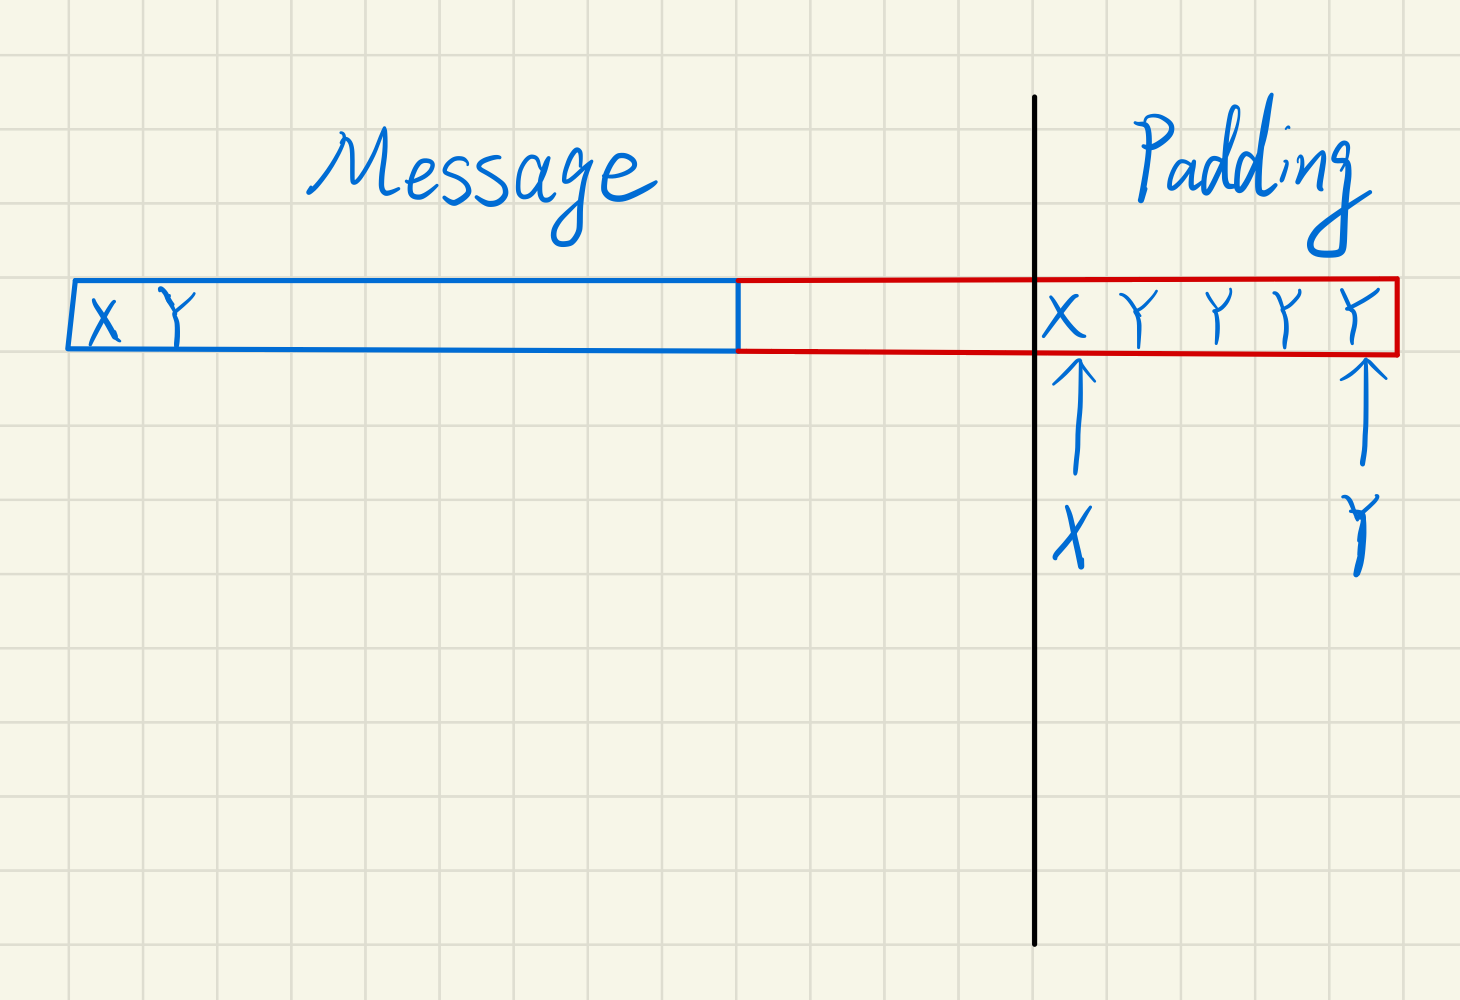 Message Padding
X Y X Y Y Y Y
X Y